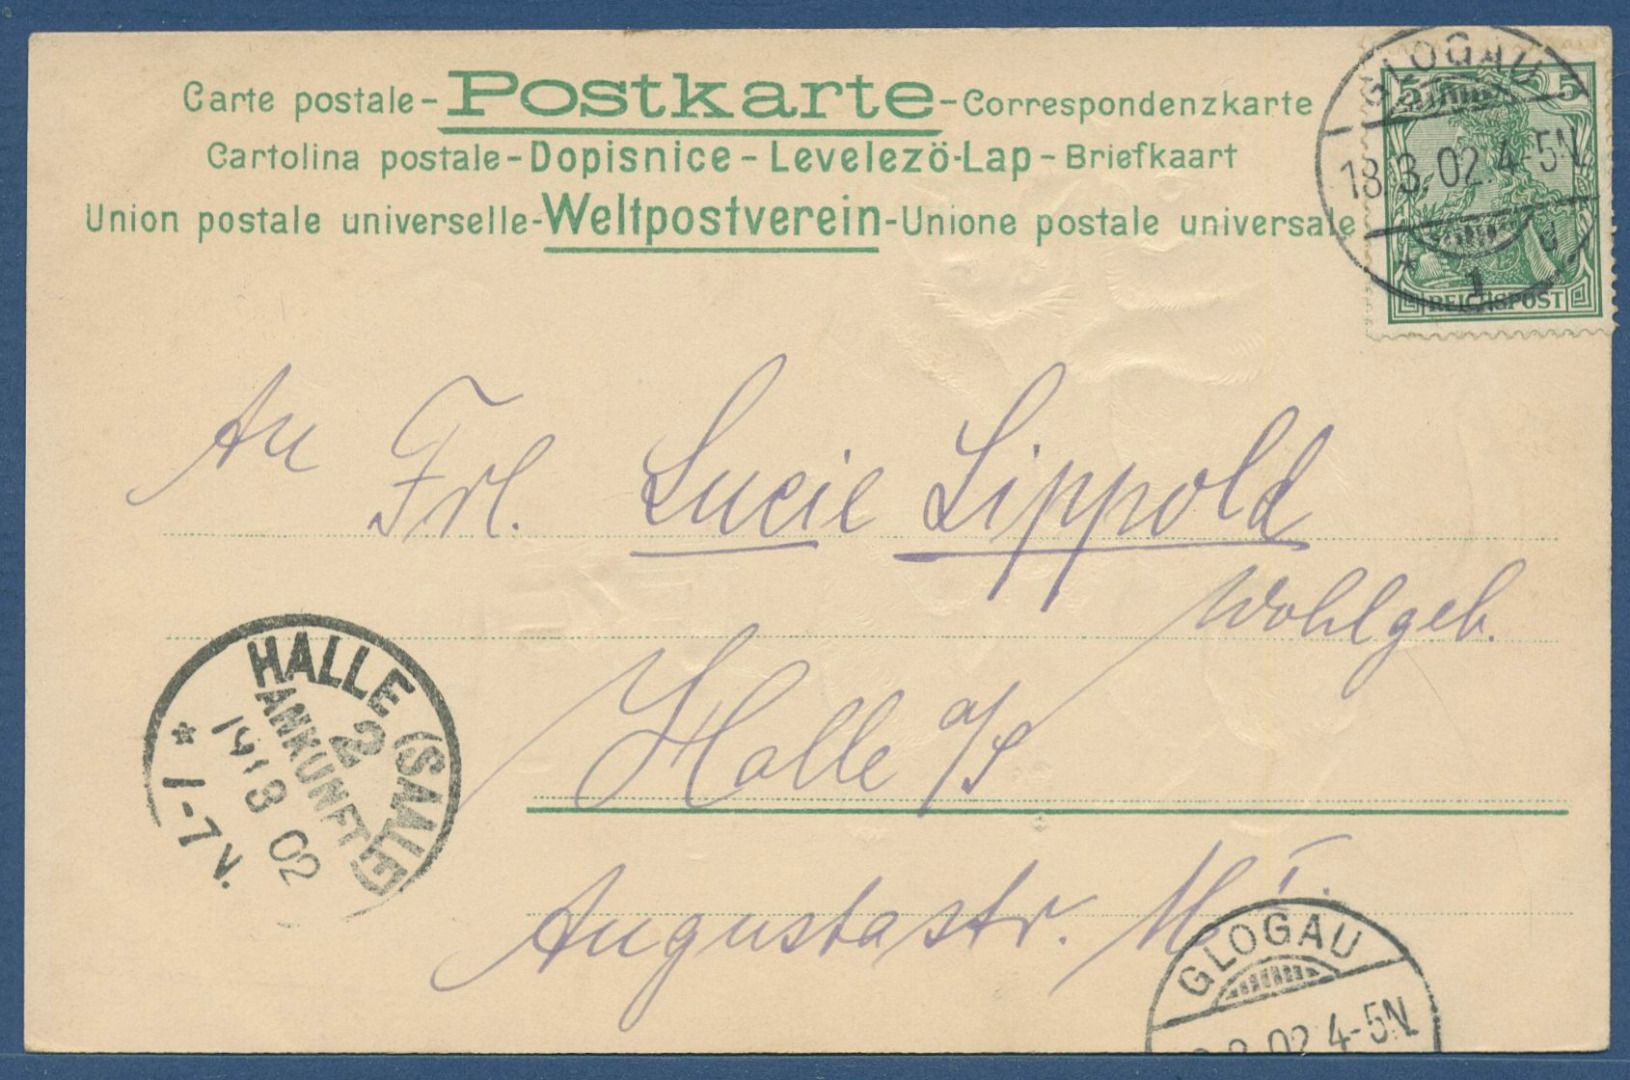 Carte postale - Postkarte - Correspondenzkarte
Cartolina postale - Dopisnice - Levelezö-Lap - Briefkaart
Union postale universelle - Weltpostverein - Unione postale universale
GLOGAU
18.3.02.4-5N
* 1
5 5
REICHSPOST
An Frl. Lucie Lippold
Wohlgeb.
Halle a/S
Augustastr.
HALLE (SAALE)
2
ANKUNFT
19 3 02
* 1-7V.
GLOGAU
3.02 4-5N.